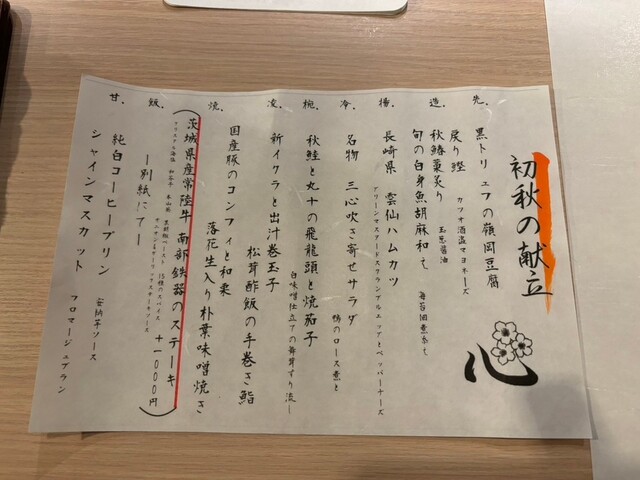 初秋の献立
心
先、
黒トリュフの嶺岡豆腐
造、
戻り鰹 カツオ酒盗マヨネーズ
秋鰆藁炙り 玉葱醤油
旬の白身魚胡麻和え 海苔佃煮添え
揚、
長崎県 雲仙ハムカツ
グリーンマスタードスクランブルエッグとペッパーチーズ
冷、
名物 三心吹き寄せサラダ 鴨のロース煮と
椀、
秋鮭と丸十の飛龍頭と焼茄子
白味噌仕立ての舞茸すり流し
次、
新イクラと出汁巻玉子
松茸酢飯の手巻き鮨
焼、
国産豚のコンフィと和栗
落花生入り朴葉味噌焼き
(茨城県産常陸牛 南部鉄器のステーキ
クリスタル海塩 和辛子 本山葵 15種のスパイス
+1000円)
飯、
―別紙にて―
甘、
純白コーヒープリン 安納芋ソース
シャインマスカット フロマージュブラン